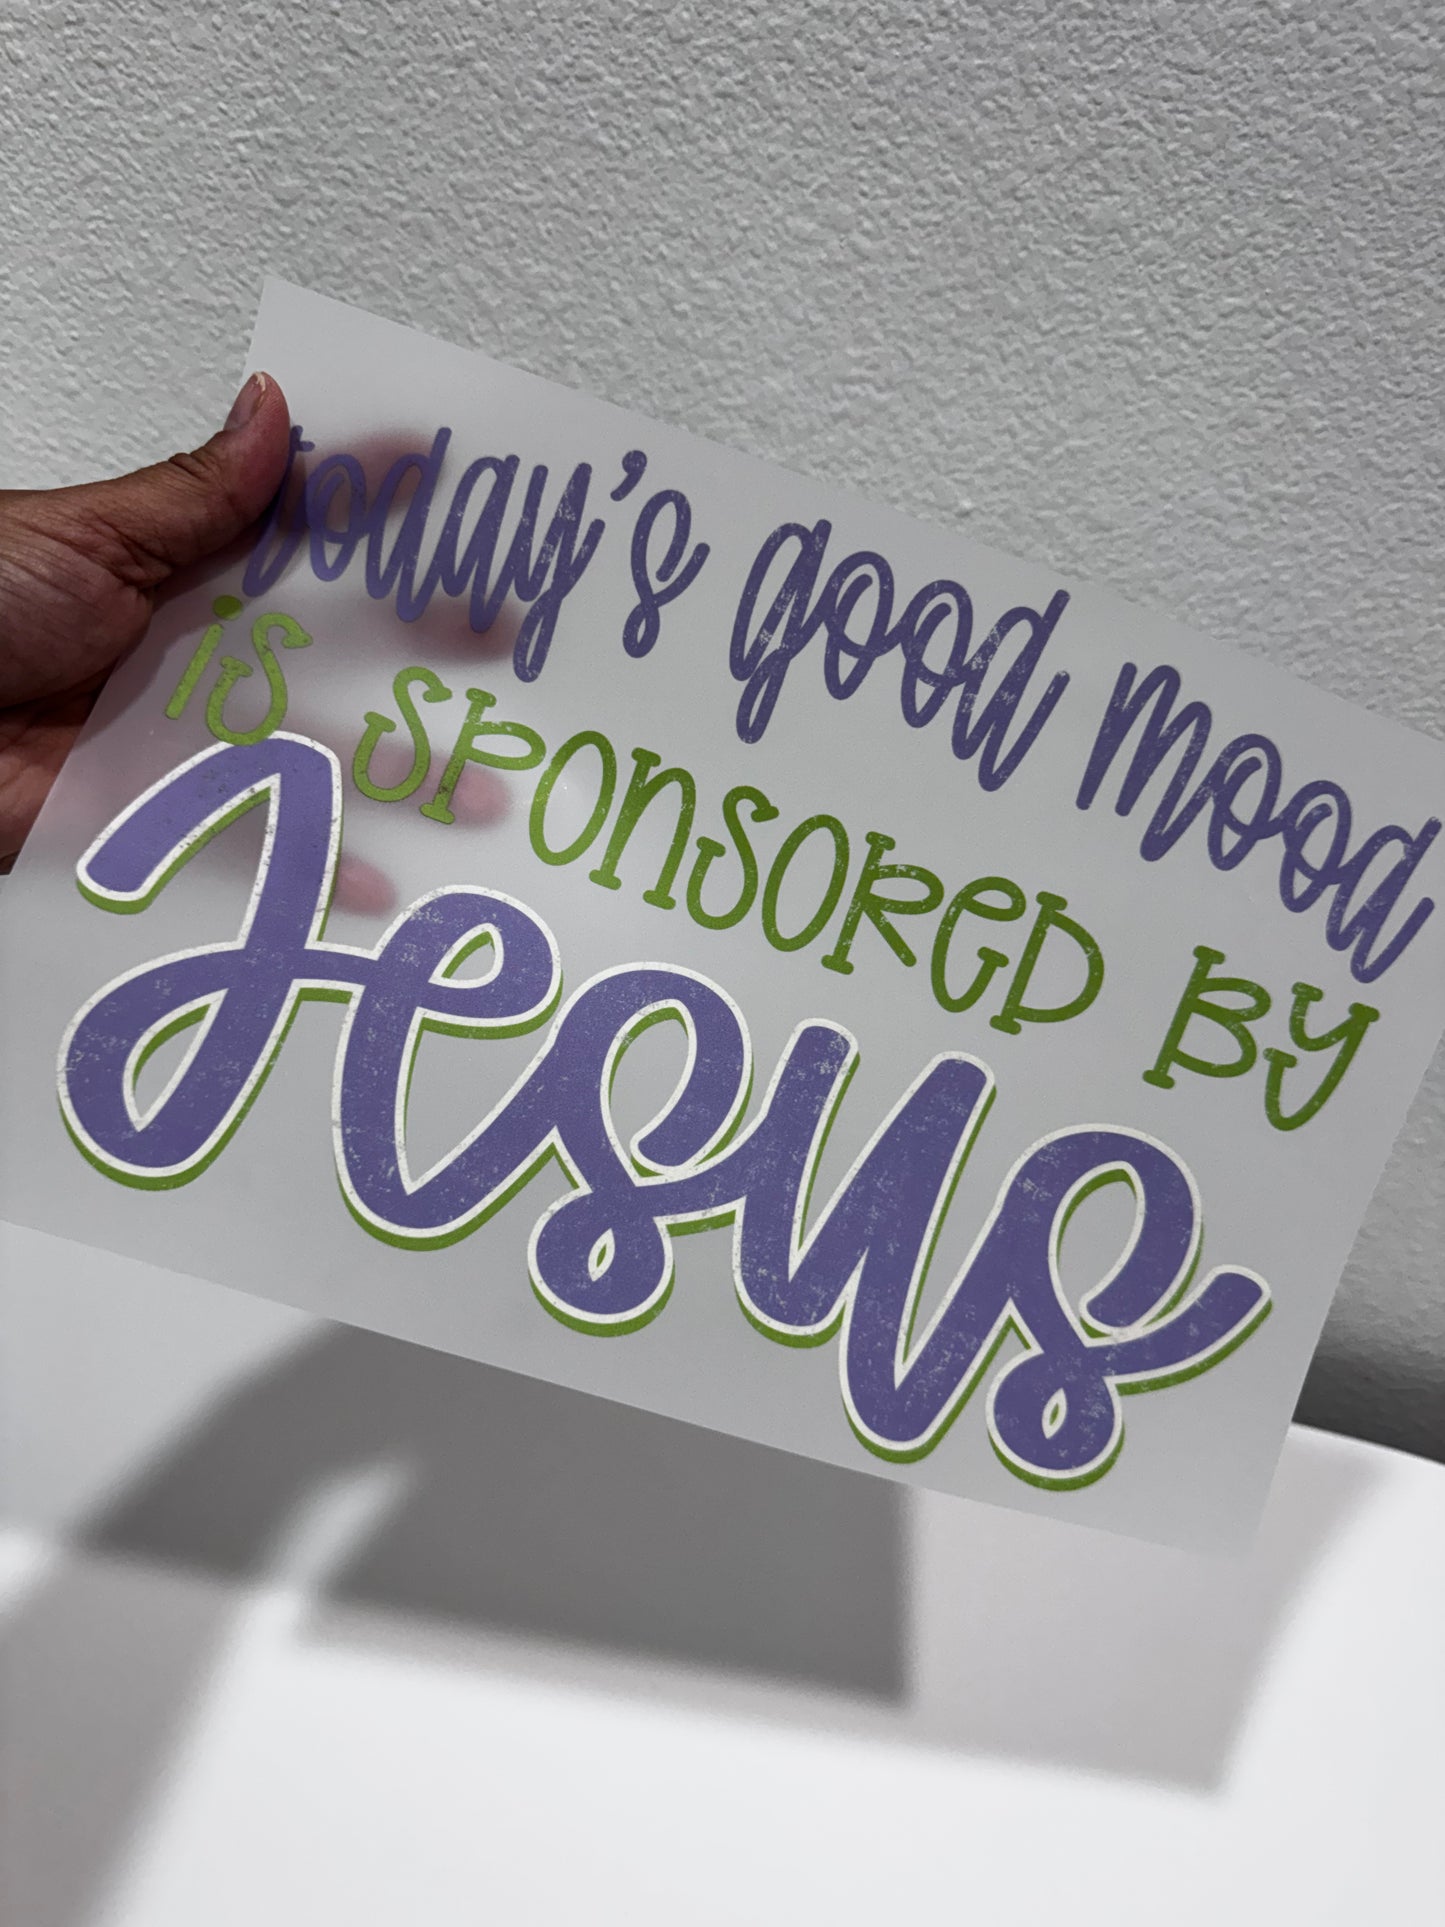 today's good mood
is sponsored by
Jesus